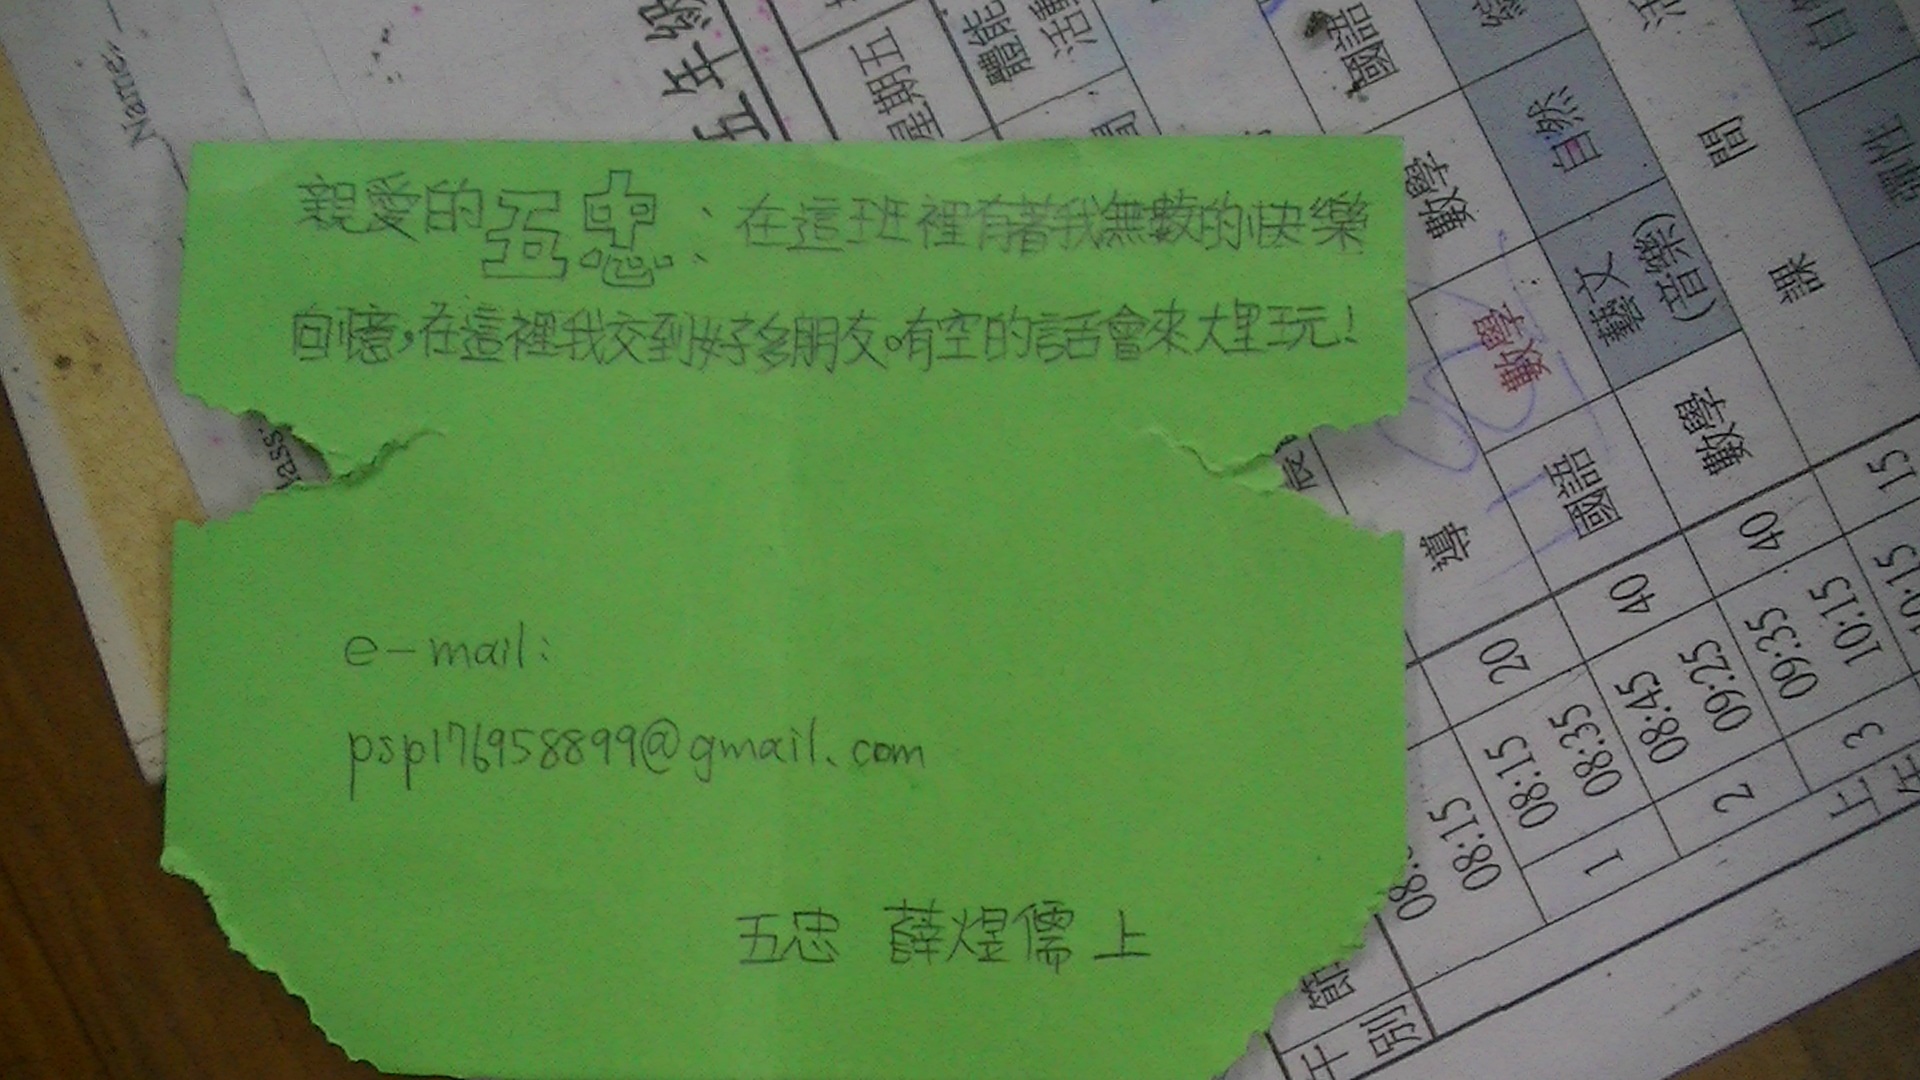 親愛的五忠：在這班裡有著我無數的快樂
回憶，在這裡我交到好多朋友。有空的話會來大里玩！
e-mail:
psp176958899@gmail.com
五忠 薛煜儒 上
Name:
五年級
星期五
體能
活動
國語
數學
數學
國語
自然
藝文
(音樂)
數學
課
間
活
導
20
40
40
15
08:15
08:15
08:35
08:45
09:25
09:35
10:15
10:15
1
2
3
上
午
節
午別